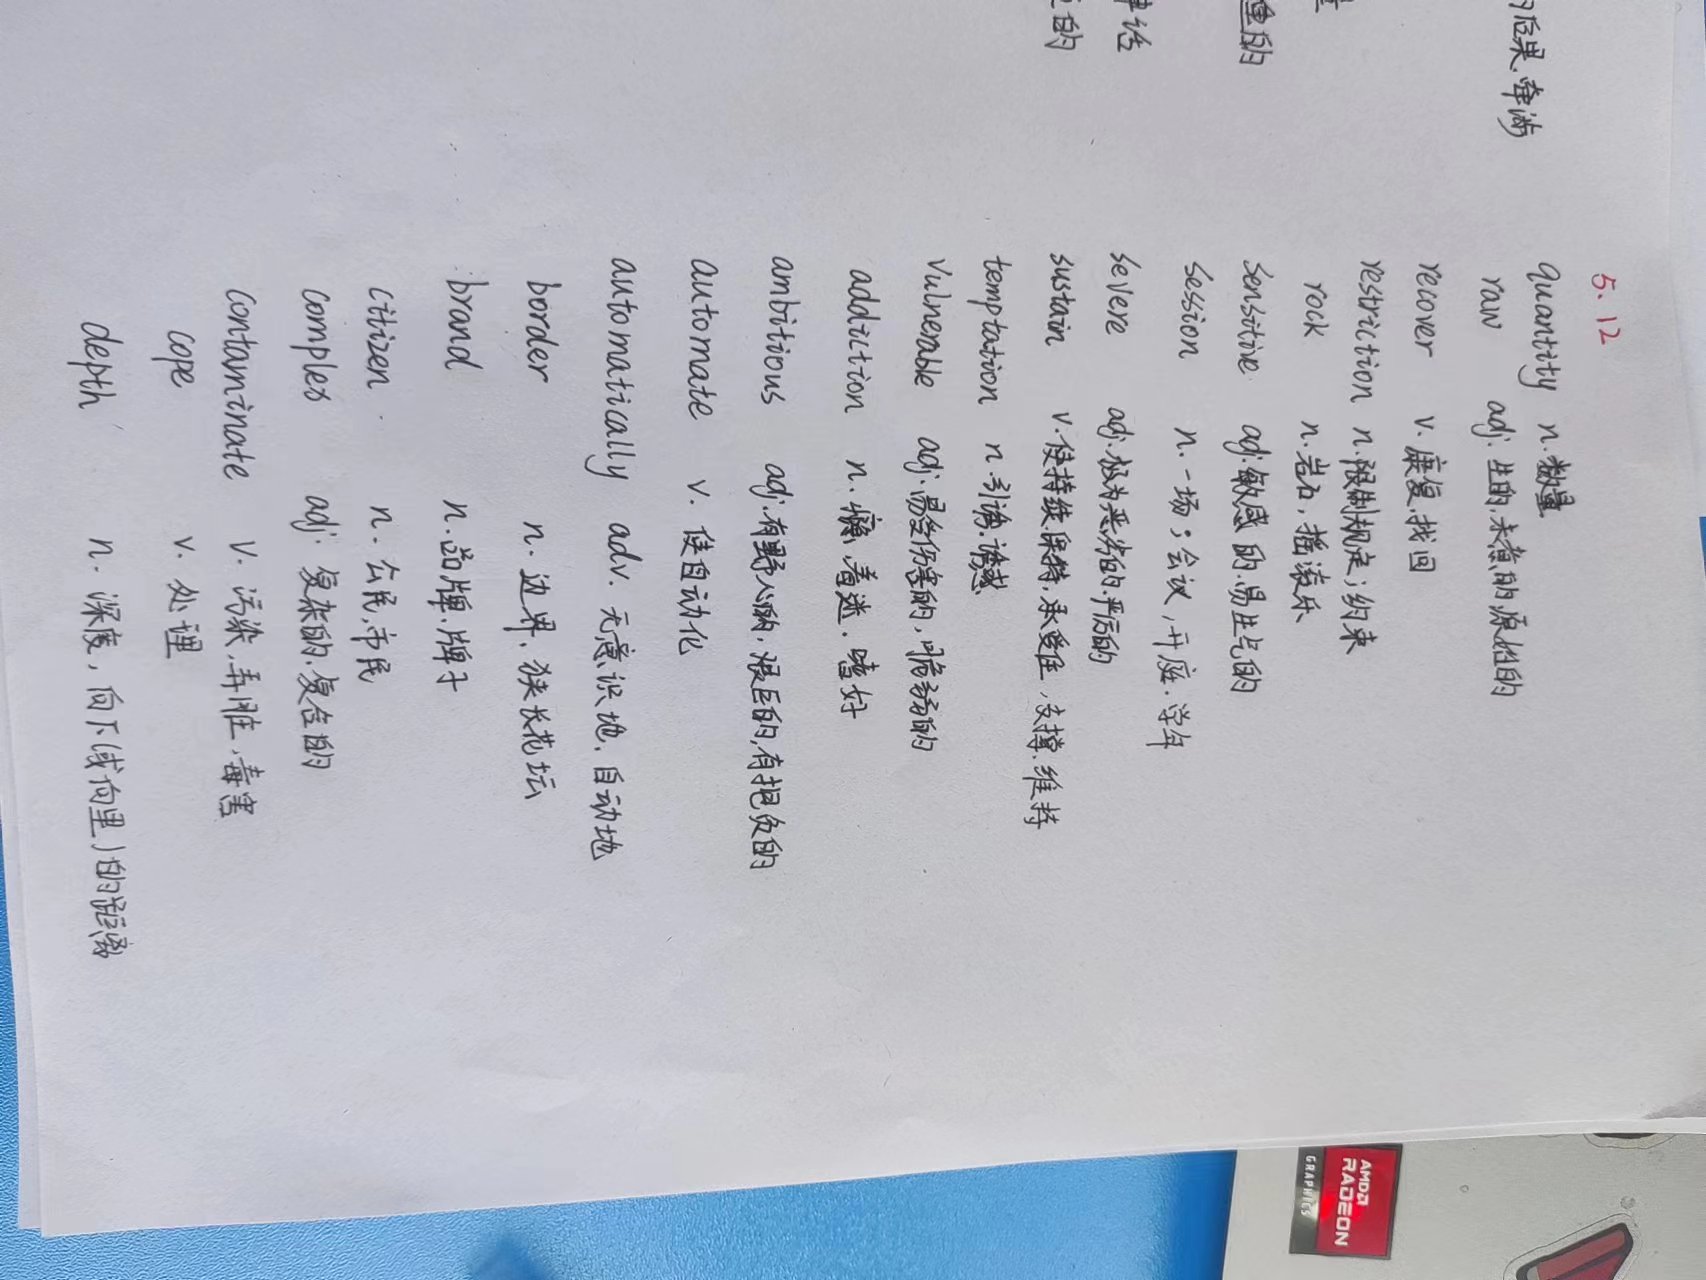 5.12
的后果.牵涉
quantity n.数量
raw adj.生的,未煮的,原始的
recover v.康复,找回
restriction n.限制规定;约束
rock n.岩石,摇滚乐
重的
sensitive adj.敏感的.易生气的
session n.一场;会议,开庭.学年
severe adj.极为恶劣的.严厉的
sustain v.使持续.保持,承受住,支撑.维持
的
temptation n.引诱.诱惑
vulnerable adj.易受伤害的,脆弱的
addiction n.瘾,着迷.嗜好
ambitious adj.有野心的,艰巨的,有抱负的
automate v.使自动化
automatically adv.无意识地,自动地
border n.边界,狭长花坛
brand n.品牌.牌子
citizen n.公民,市民
complex adj.复杂的.复合的
contaminate v.污染,弄脏,毒害
cope v.处理
depth n.深度,向下(或向里)的距离
AMD
RADEON
GRAPHICS